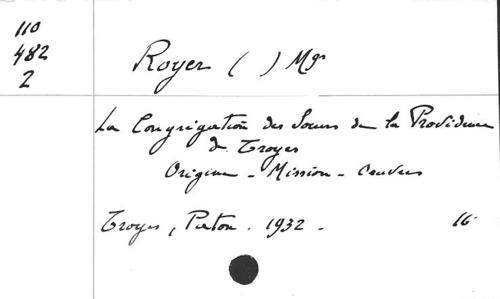 110
482
2
Royer ( ) Mgr
La Congrégation des Soeurs de la Providence
de Troyes
Origine - Mission - Oeuvres
Troyes, Paton. 1932. 16°